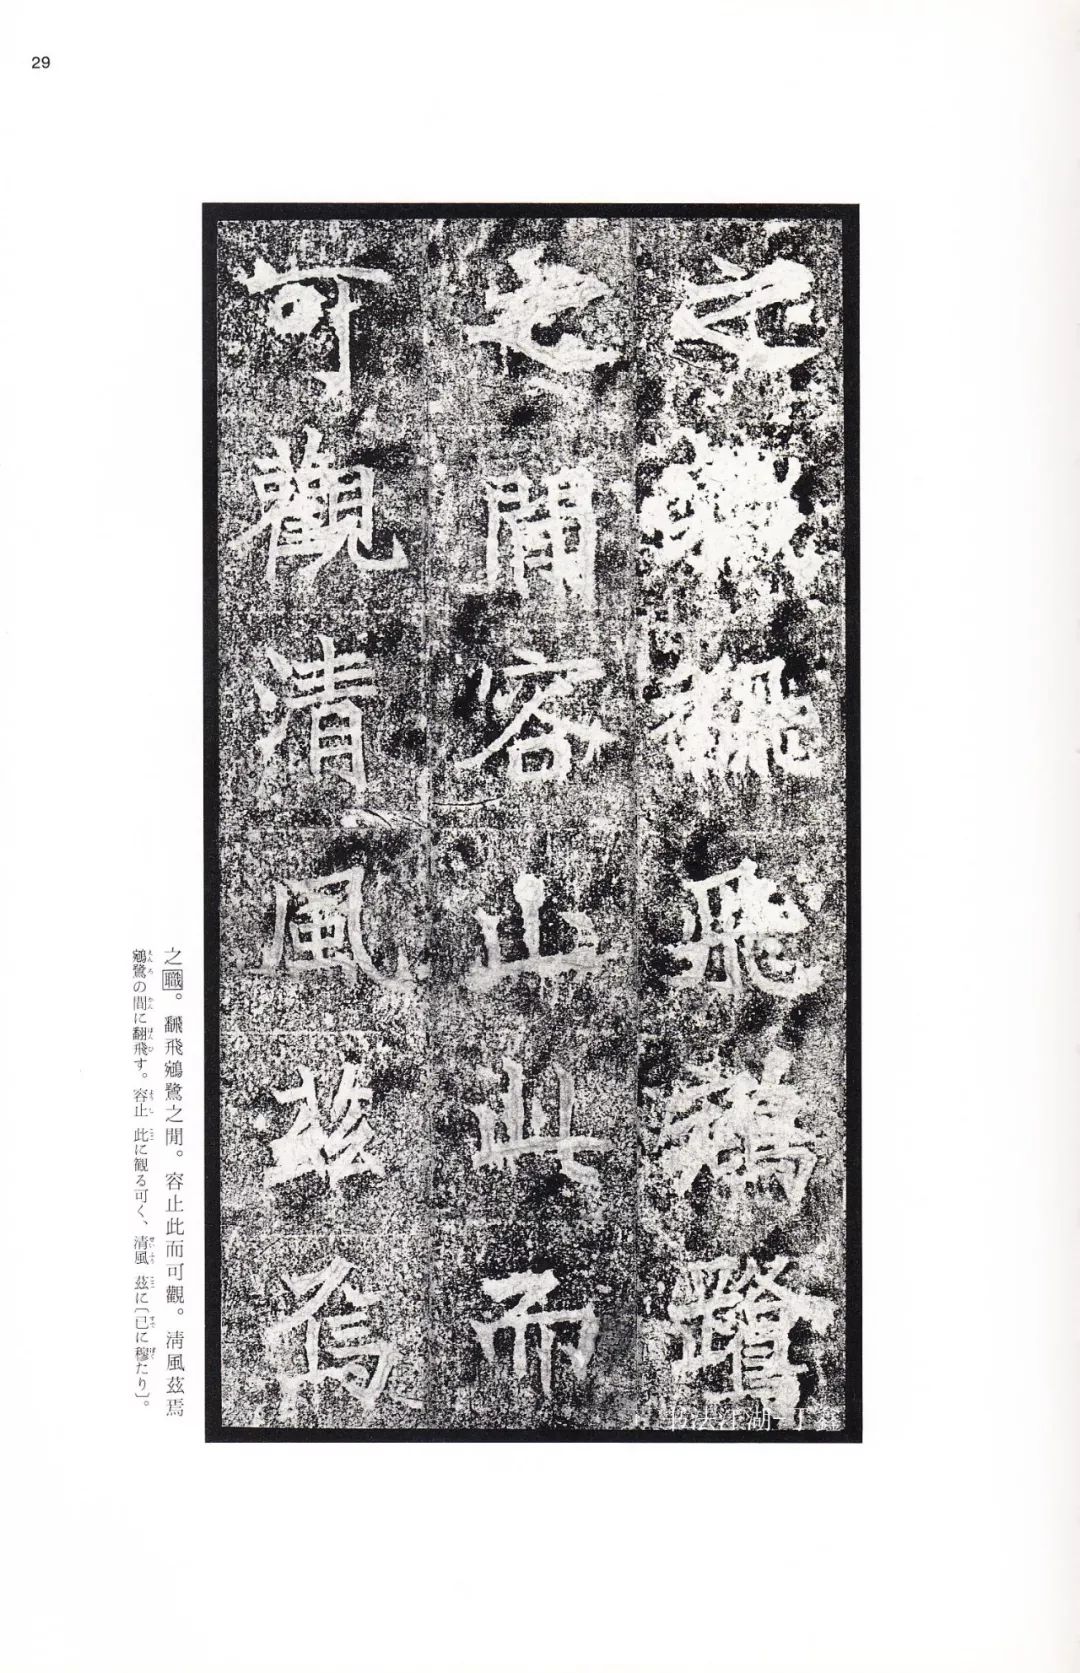 29
之職飜飛鵷鷺
之閒容止此而
可觀清風茲焉
之職。飜飛鵷鷺之閒。容止此而可觀。清風茲焉
鵷鷺の間に翻飛す。容止 此に観る可く、清風 茲に〔已に穆たり〕。
书法江湖-丁鑫